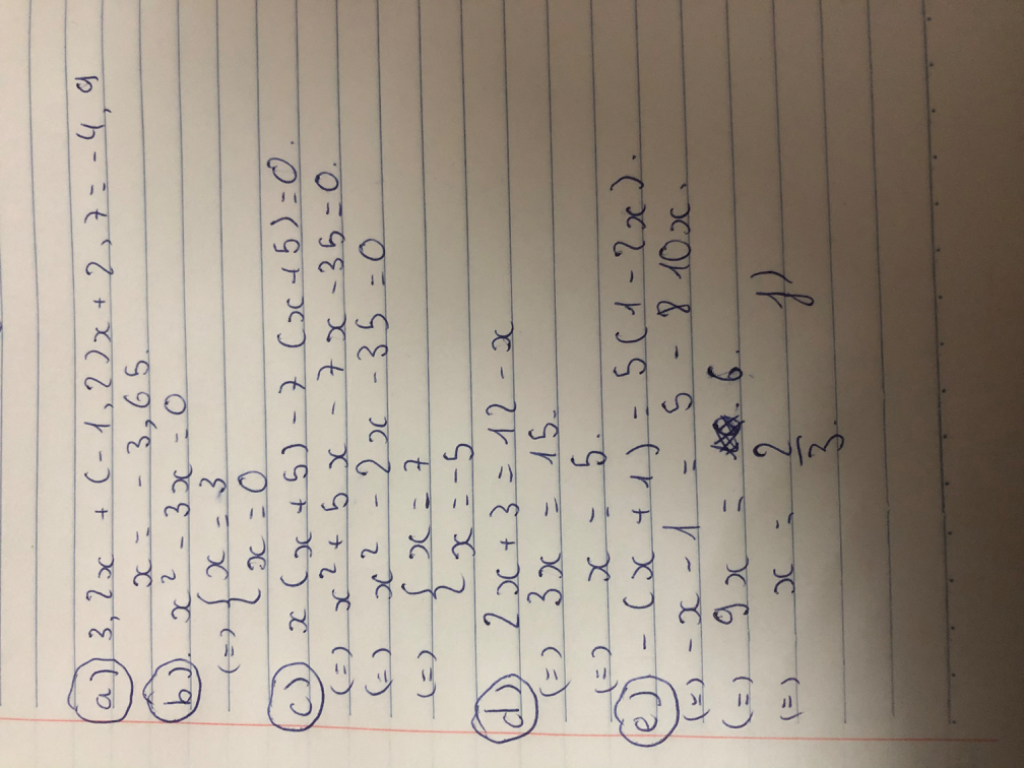 a) 3,2x + (-1,2)x + 2,7 = -4,9
x = -3,65.
b) x² - 3x = 0
(=) { x = 3
x = 0
c) x(x+5) - 7(x+5) = 0.
(=) x² + 5x - 7x - 35 = 0.
(=) x² - 2x - 35 = 0
(=) { x = 7
x = -5
d) 2x + 3 = 12 - x
(=) 3x = 15.
(=) x = 5.
e) -(x+1) = 5(1-2x).
(=) -x - 1 = 5 - 8 10x.
(=) 9x = 6.
(=) x = 2/3. f)